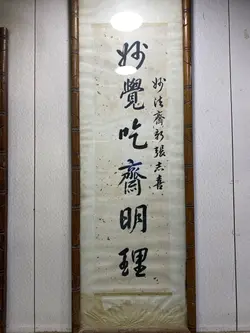 妙法齋新張志喜
妙覺吃齋明理